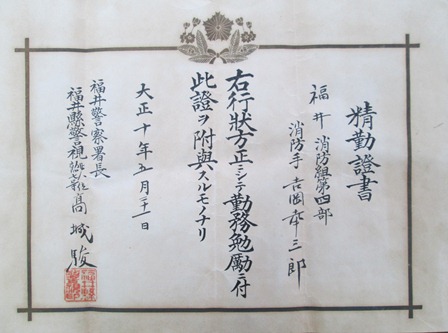 精勤證書
福井消防組第四部
消防手 吉岡幸三郎
右行狀方正ニシテ勤務勉励ニ付
此證ヲ附與スルモノナリ
大正十年五月三十一日
福井警察署長
福井縣警視 高城駿